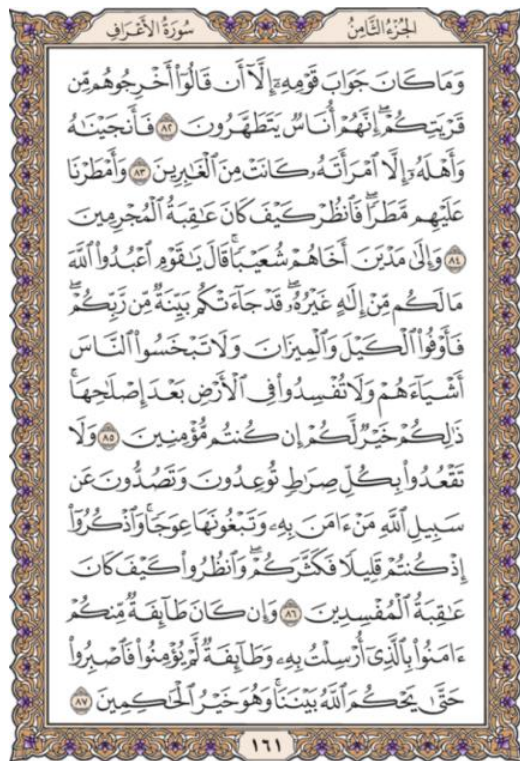 الجُزْءُ الثَّامِنُ
سُورَةُ الأَعْرَافِ
وَمَا كَانَ جَوَابَ قَوْمِهِۦٓ إِلَّآ أَن قَالُوٓا۟ أَخْرِجُوهُم مِّن
قَرْيَتِكُمْۖ إِنَّهُمْ أُنَاسٌ يَتَطَهَّرُونَ ٨٢ فَأَنجَيْنَٰهُ
وَأَهْلَهُۥٓ إِلَّا ٱمْرَأَتَهُۥ كَانَتْ مِنَ ٱلْغَٰبِرِينَ ٨٣ وَأَمْطَرْنَا
عَلَيْهِم مَّطَرًاۖ فَٱنظُرْ كَيْفَ كَانَ عَٰقِبَةُ ٱلْمُجْرِمِينَ
٨٤ وَإِلَىٰ مَدْيَنَ أَخَاهُمْ شُعَيْبًاۗ قَالَ يَٰقَوْمِ ٱعْبُدُوا۟ ٱللَّهَ
مَا لَكُم مِّنْ إِلَٰهٍ غَيْرُهُۥۖ قَدْ جَآءَتْكُم بَيِّنَةٌ مِّن رَّبِّكُمْۖ
فَأَوْفُوا۟ ٱلْكَيْلَ وَٱلْمِيزَانَ وَلَا تَبْخَسُوا۟ ٱلنَّاسَ
أَشْيَآءَهُمْ وَلَا تُفْسِدُوا۟ فِى ٱلْأَرْضِ بَعْدَ إِصْلَٰحِهَاۚ
ذَٰلِكُمْ خَيْرٌ لَّكُمْ إِن كُنتُم مُّؤْمِنِينَ ٨٥ وَلَا
تَقْعُدُوا۟ بِكُلِّ صِرَٰطٍ تُوعِدُونَ وَتَصُدُّونَ عَن
سَبِيلِ ٱللَّهِ مَنْ ءَامَنَ بِهِۦ وَتَبْغُونَهَا عِوَجًاۚ وَٱذْكُرُوٓا۟
إِذْ كُنتُمْ قَلِيلًا فَكَثَّرَكُمْۖ وَٱنظُرُوا۟ كَيْفَ كَانَ
عَٰقِبَةُ ٱلْمُفْسِدِينَ ٨٦ وَإِن كَانَ طَآئِفَةٌ مِّنكُمْ
ءَامَنُوا۟ بِٱلَّذِىٓ أُرْسِلْتُ بِهِۦ وَطَآئِفَةٌ لَّمْ يُؤْمِنُوا۟ فَٱصْبِرُوا۟
حَتَّىٰ يَحْكُمَ ٱللَّهُ بَيْنَنَاۚ وَهُوَ خَيْرُ ٱلْحَٰكِمِينَ ٨٧
١٦١